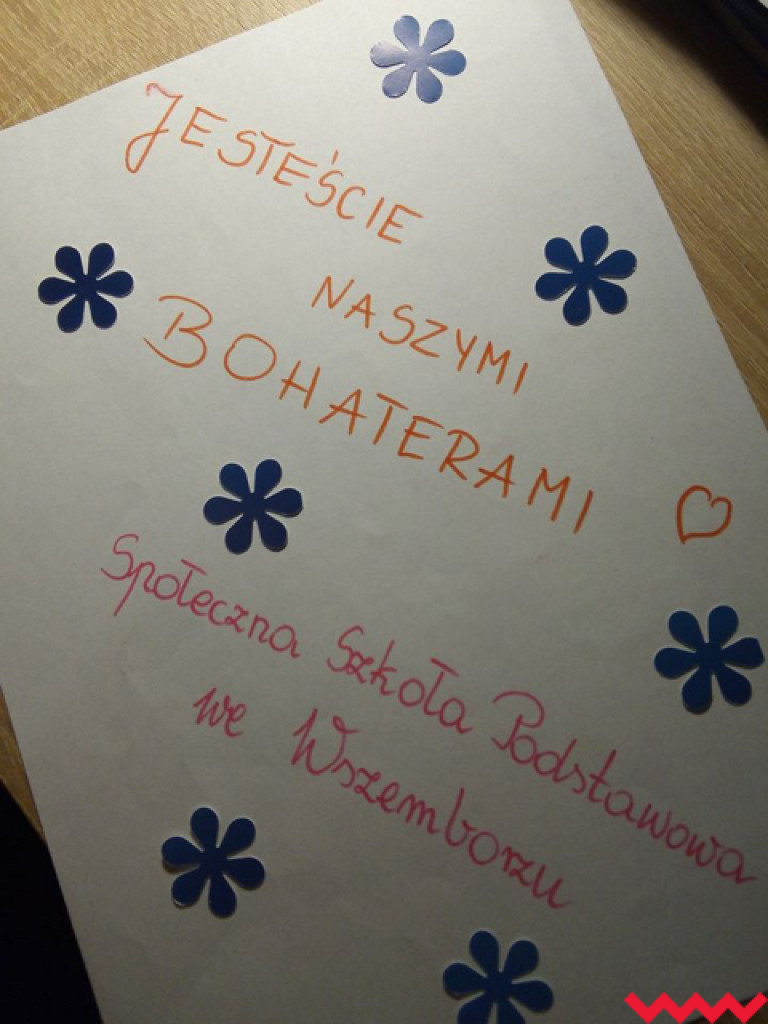 JESTEŚCIE
NASZYMI
BOHATERAMI
Społeczna Szkoła Podstawowa
we Wszemborzu